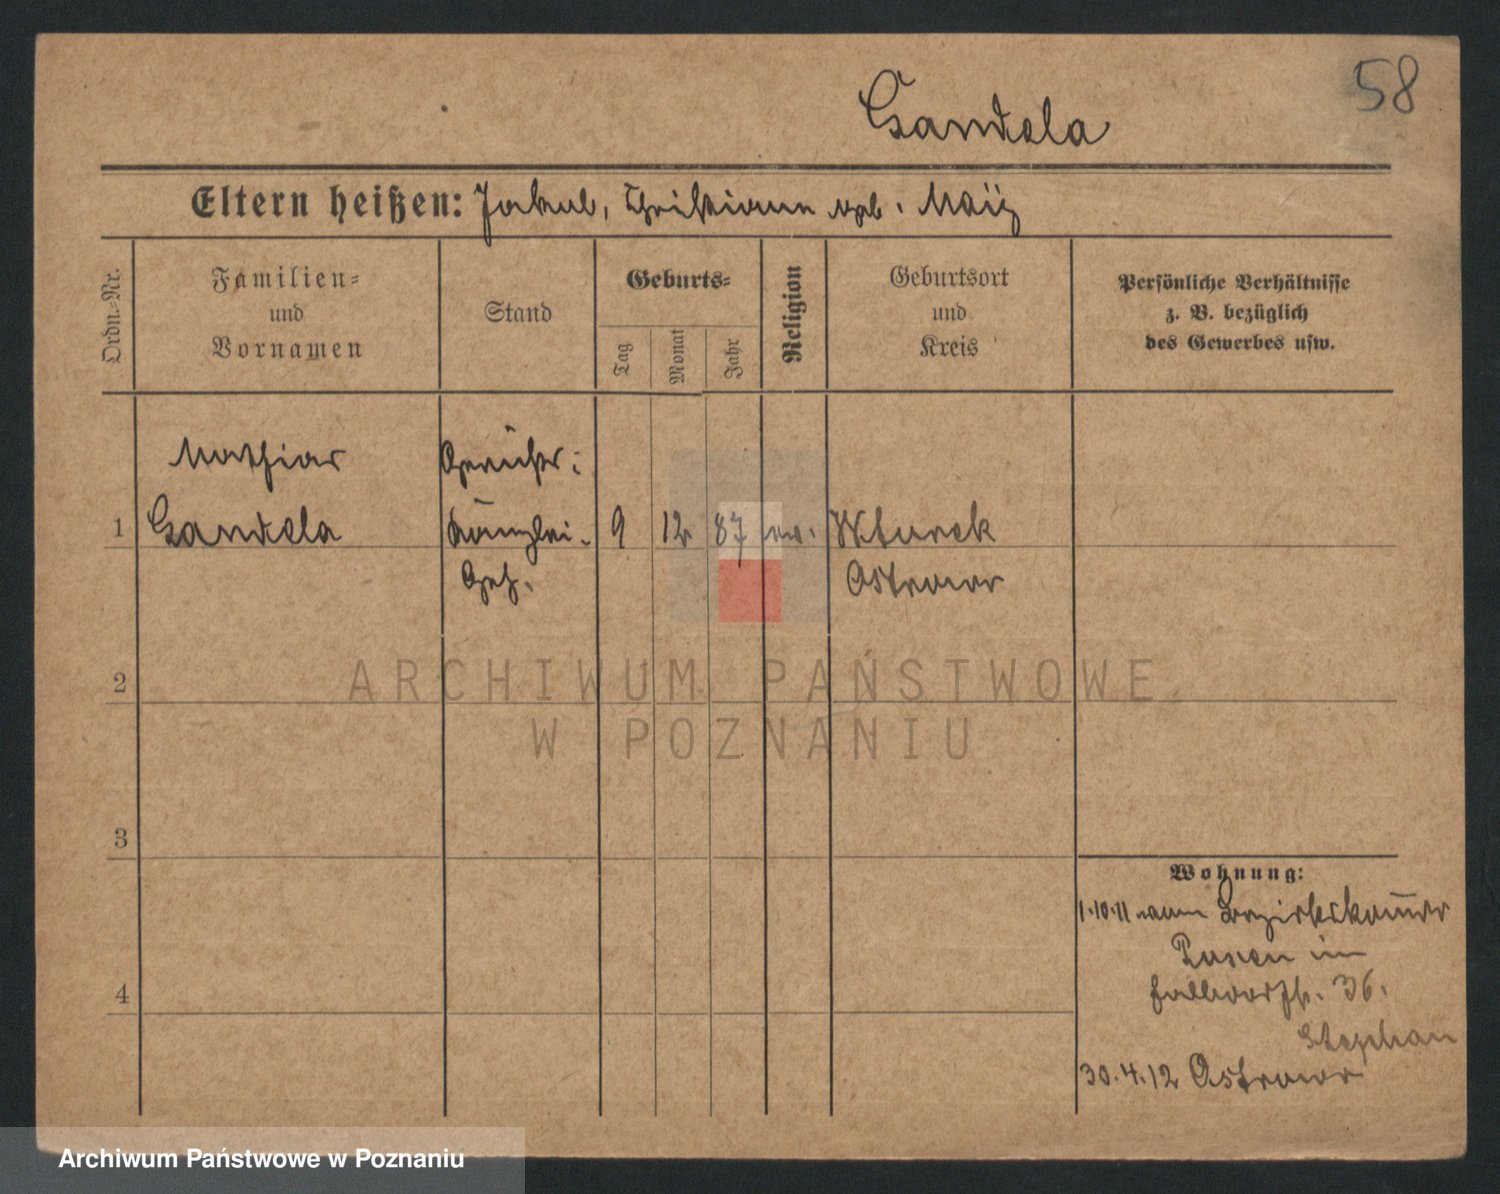 58
Gandela
Eltern heißen: Jakub, Christiane geb. Maiz
Ordn.-Nr.
Familien-
und
Vornamen
Stand
Geburts-
Tag
Monat
Jahr
Religion
Geburtsort
und
Kreis
Persönliche Verhältnisse
z. B. bezüglich
des Gewerbes usw.
1
Mathias
Gandela
Gerichts-
Kanzlei-
Geh.
9
12
87
ev.
Wturek
Ostrowo
2
3
4
Wohnung:
1.10.11 vom Bezirkskomdo
Posen im
36.
Stephan
30.4.12 Ostrowo
ARCHIWUM PAŃSTWOWE
W POZNANIU
Archiwum Państwowe w Poznaniu